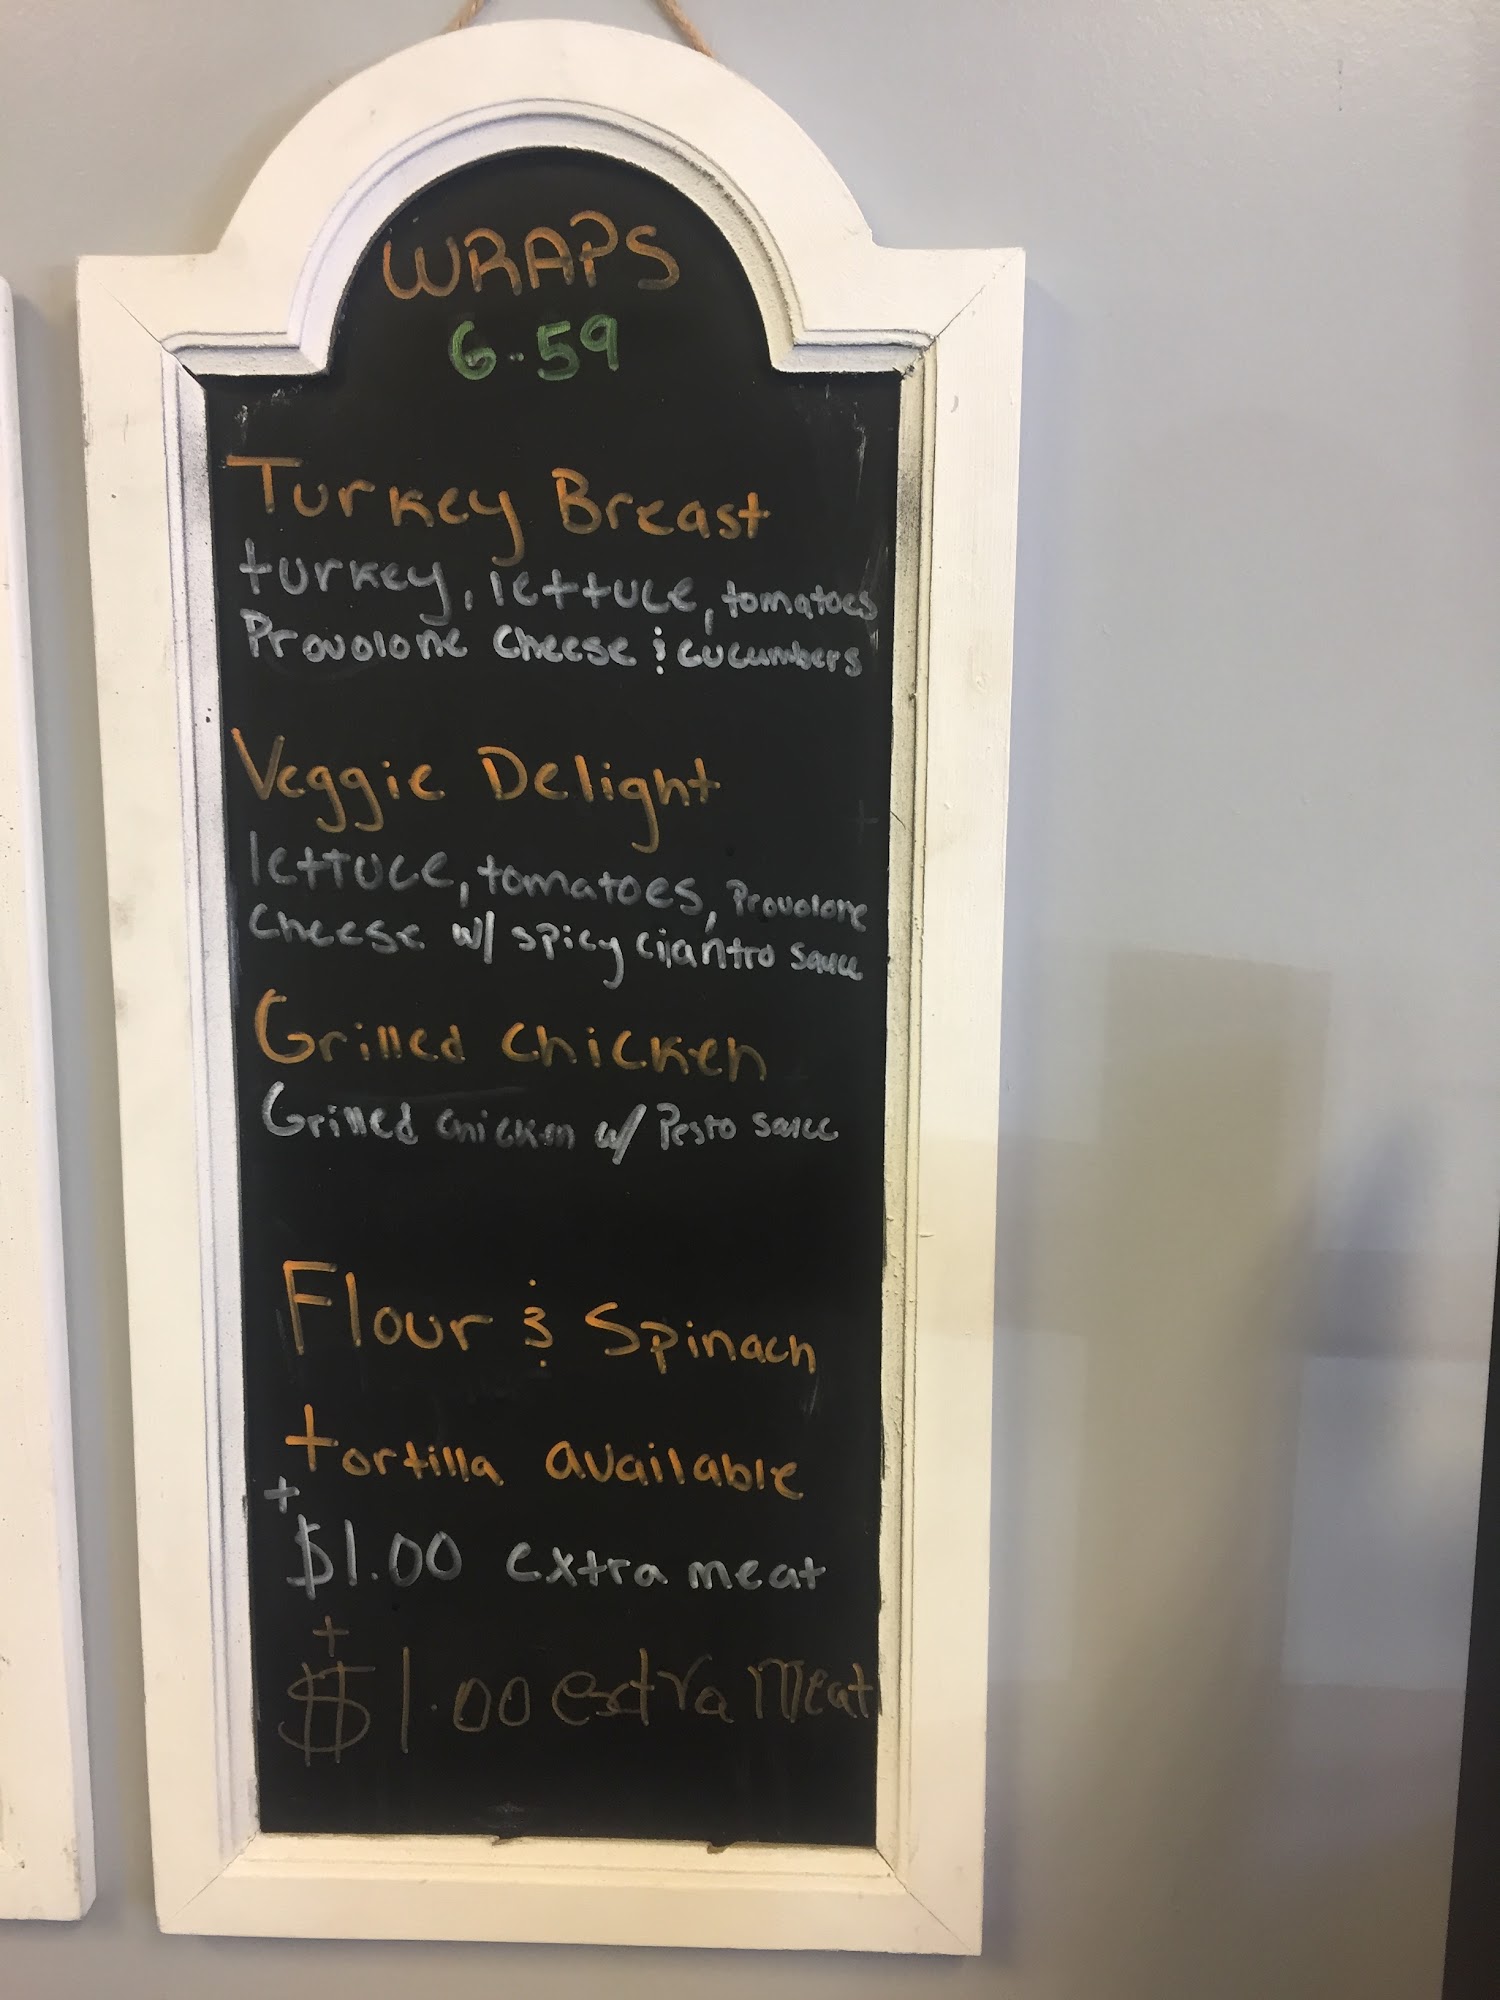 WRAPS
6.59
Turkey Breast
turkey, lettuce, tomatoes
Provolone Cheese & cucumbers
Veggie Delight
lettuce, tomatoes, Provolone
Cheese w/ spicy cilantro sauce
Grilled Chicken
Grilled chicken w/ Pesto sauce
Flour & Spinach
tortilla available
+
$1.00 extra meat
+
$1.00 extra meat